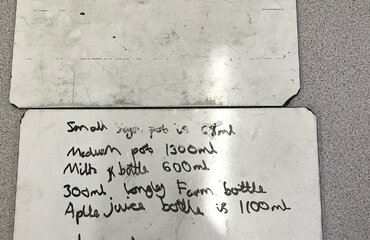 Small pot is ml
Medium pot 1300ml
Milk bottle 600ml
300ml Longley Farm bottle
Apple juice bottle is 1100ml